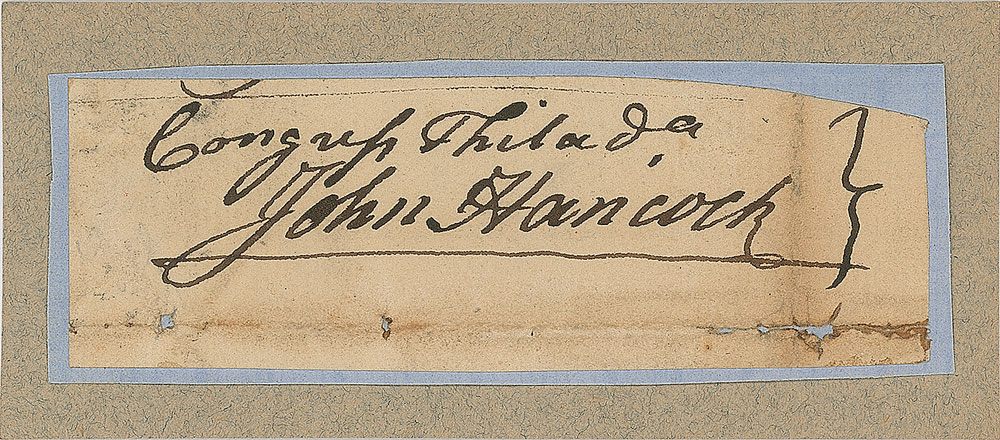 Congreſs Philad.ᵃ
John Hancock